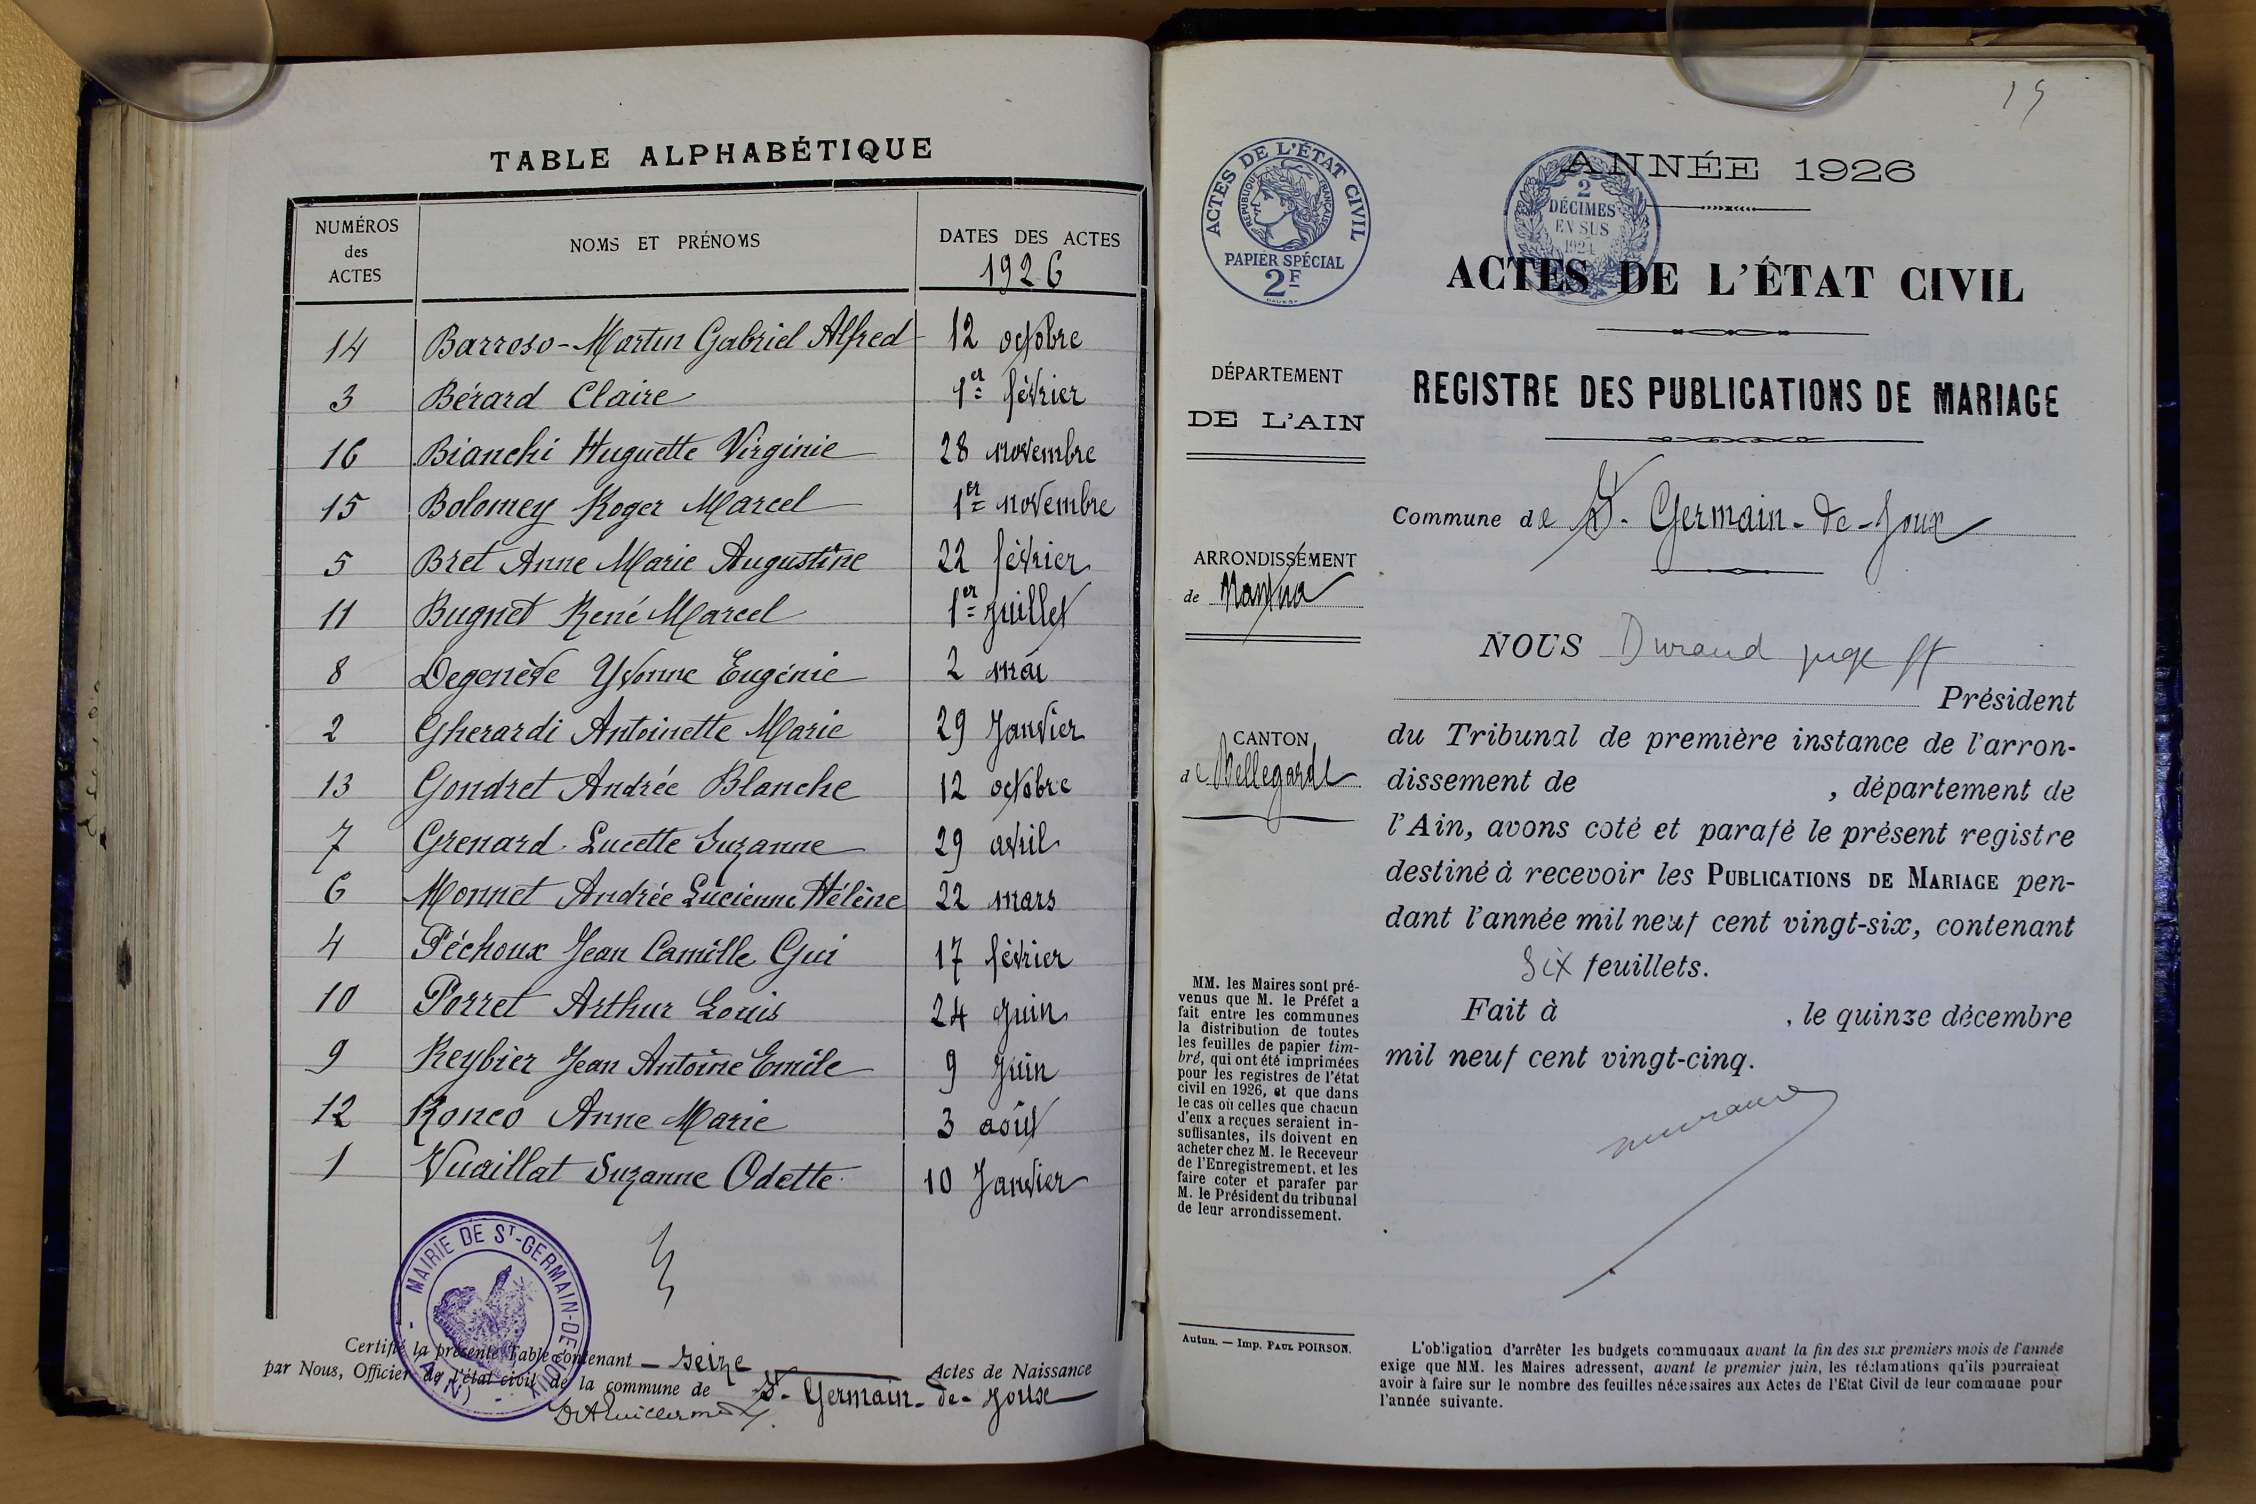 TABLE ALPHABÉTIQUE
NUMÉROS des ACTES
NOMS ET PRÉNOMS
DATES DES ACTES
1926
14 Barroso-Martin Gabriel Alfred 12 octobre
3 Bérard Claire 1er février
16 Bianchi Huguette Virginie 28 novembre
15 Bolomey Roger Marcel 1er novembre
5 Bret Anne Marie Augustine 22 février
11 Bugnet René Marcel 1er Juillet
8 Degenève Yvonne Eugénie 2 mai
2 Gherardi Antoinette Marie 29 Janvier
13 Gondret Andrée Blanche 12 octobre
7 Grenard Lucette Suzanne 29 avril
6 Monnet Andrée Lucienne Hélène 22 mars
4 Péchoux Jean Camille Gui 17 février
10 Porret Arthur Louis 24 Juin
9 Reybier Jean Antoine Emile 9 Juin
12 Ronco Anne Marie 3 août
1 Vuaillat Suzanne Odette 10 Janvier
MAIRIE DE ST-GERMAIN-DE-JOUX
(AIN)
Certifié la présente Table contenant seize Actes de Naissance
par Nous, Officier de l'état civil de la commune de St-Germain-de-Joux
15
ACTES DE L'ÉTAT CIVIL
RÉPUBLIQUE FRANÇAISE
PAPIER SPÉCIAL
2F
2
DÉCIMES
EN SUS
1924
ANNÉE 1926
ACTES DE L'ÉTAT CIVIL
REGISTRE DES PUBLICATIONS DE MARIAGE
DÉPARTEMENT
DE L'AIN
ARRONDISSEMENT
de Nantua
CANTON
de Bellegarde
MM. les Maires sont pré-
venus que M. le Préfet a
fait entre les communes
la distribution de toutes
les feuilles de papier tim-
bré, qui ont été imprimées
pour les registres de l'état
civil en 1926, et que dans
le cas où celles que chacun
d'eux a reçues seraient in-
suffisantes, ils doivent en
acheter chez M. le Receveur
de l'Enregistrement, et les
faire coter et parafer par
M. le Président du tribunal
de leur arrondissement.
Autun. — Imp. PAUL POIRSON.
Commune de St-Germain-de-Joux
NOUS Durand juge ff
Président
du Tribunal de première instance de l'arron-
dissement de , département de
l'Ain, avons coté et parafé le présent registre
destiné à recevoir les PUBLICATIONS DE MARIAGE pen-
dant l'année mil neuf cent vingt-six, contenant
six feuillets.
Fait à , le quinze décembre
mil neuf cent vingt-cinq.
L'obligation d'arrêter les budgets communaux avant la fin des six premiers mois de l'année
exige que MM. les Maires adressent, avant le premier juin, les réclamations qu'ils pourraient
avoir à faire sur le nombre des feuilles nécessaires aux Actes de l'Etat Civil de leur commune pour
l'année suivante.